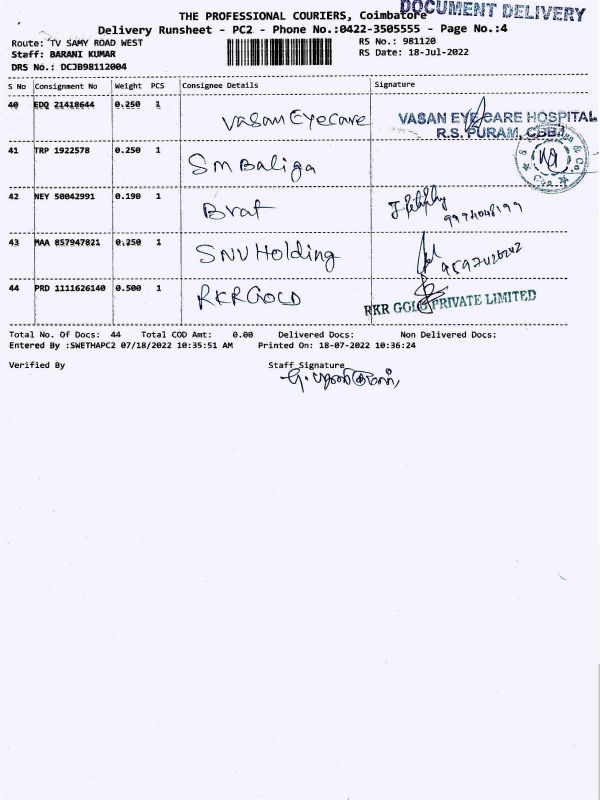 DOCUMENT DELIVERY
THE PROFESSIONAL COURIERS, Coimbatore
Delivery Runsheet - PC2 - Phone No.:0422-3505555 - Page No.:4
Route: TV SAMY ROAD WEST RS No.: 981120
Staff: BARANI KUMAR RS Date: 18-Jul-2022
DRS No.: DCJB98112004
S No Consignment No Weight PCS Consignee Details Signature
40 EDQ 21418644 0.250 1 Vasan Eyecare VASAN EYE CARE HOSPITAL
R.S. PURAM, CBB
41 TRP 1922578 0.250 1 Sm Baliga
42 NEY 50042991 0.190 1
43 MAA 857947821 0.250 1 SNV Holding
44 PRD 1111626140 0.500 1 RKR GOLD RKR GOLD PRIVATE LIMITED
Total No. Of Docs: 44 Total COD Amt: 0.00 Delivered Docs: Non Delivered Docs:
Entered By :SWETHAPC2 07/18/2022 10:35:51 AM Printed On: 18-07-2022 10:36:24
Verified By Staff Signature